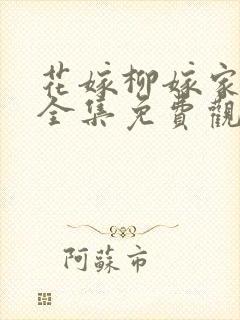 花嫁柳嫁家
全集免費觀
阿蘇市